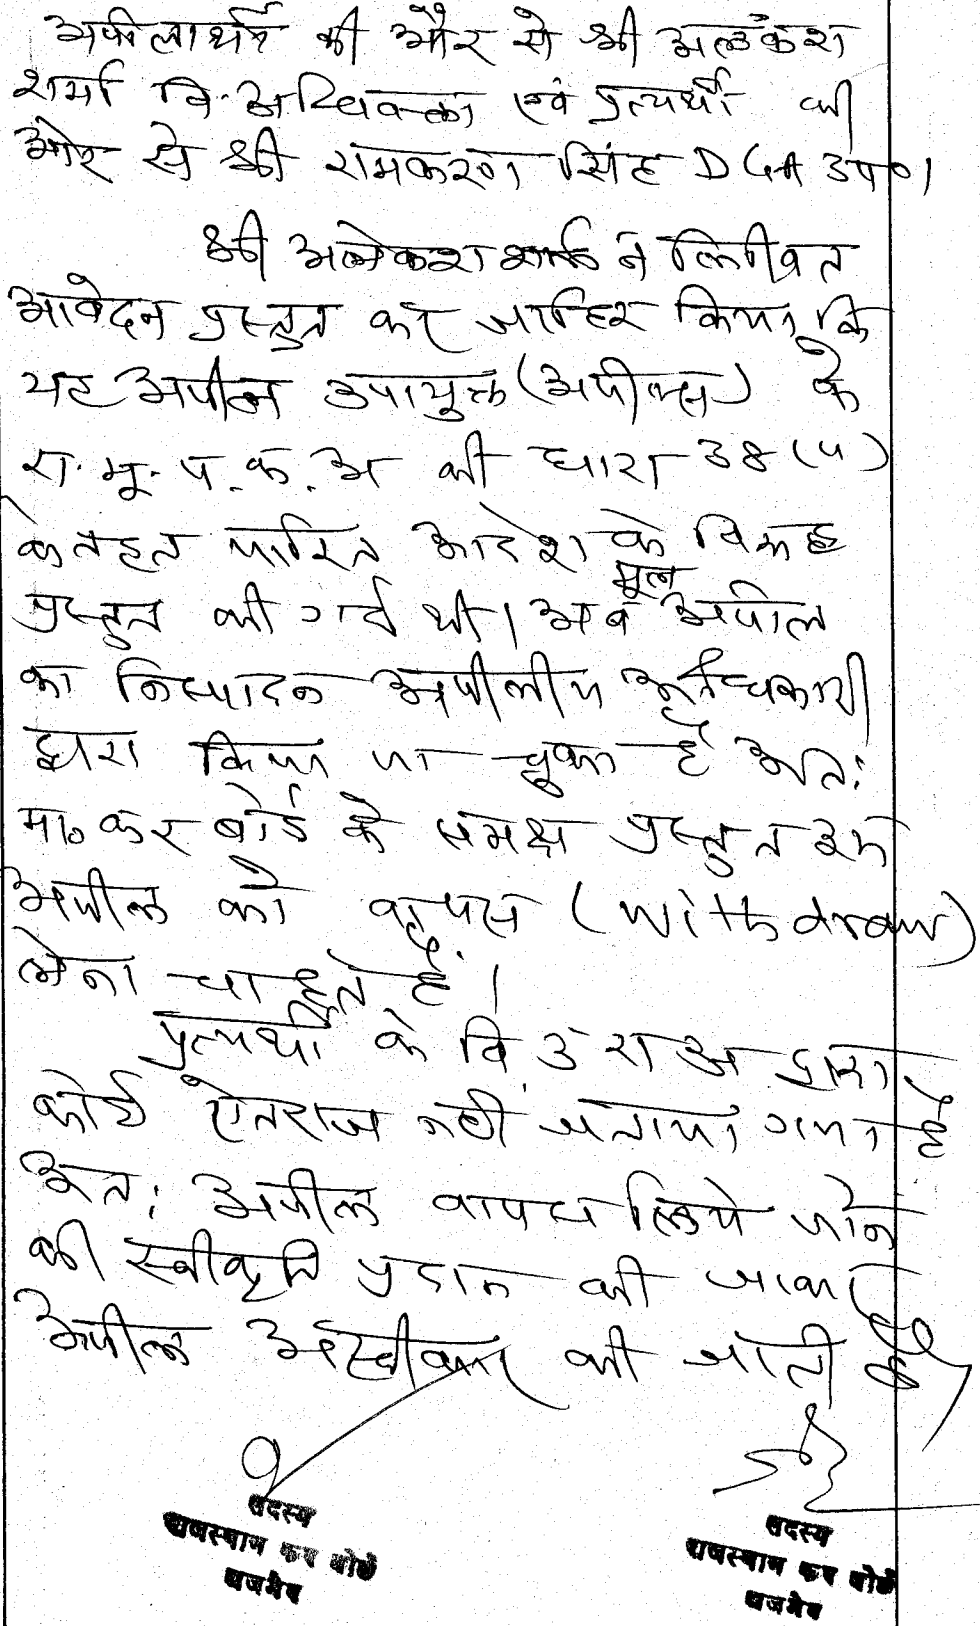 अपीलार्थी की और से श्री अलकेश
शर्मा वि. अधिवक्ता एवं प्रत्यर्थी की
ओर से श्री रामकरण सिंह DGA उप०।
श्री अलकेश शर्मा ने लिखित
आवेदन प्रस्तुत कर जाहिर किया कि
यह अपील उपायुक्त (अपील्स) के
रा. मू. प. क. अ की धारा 38 (4)
के तहत पारित आदेश के विरूद्ध
प्रस्तुत की गई थी। अब मूल अपील
का निस्पादन अपीलीय अधिकारी
द्वारा किया जा चुका है अतः
मा० कर बोर्ड के समक्ष प्रस्तुत इस
अपील को वापस (withdraw)
लेना चाहते हैं।
प्रत्यर्थी के वि. उ रा अ द्वारा
कोई ऐतराज नही जताया गया है
अत: अपील वापस लिये जाने
की स्वीकृति प्रदान की जाकर
अपील अस्वीकार की जाती है
सदस्य
राजस्थान कर बोर्ड
अजमेर
सदस्य
राजस्थान कर बोर्ड
अजमेर